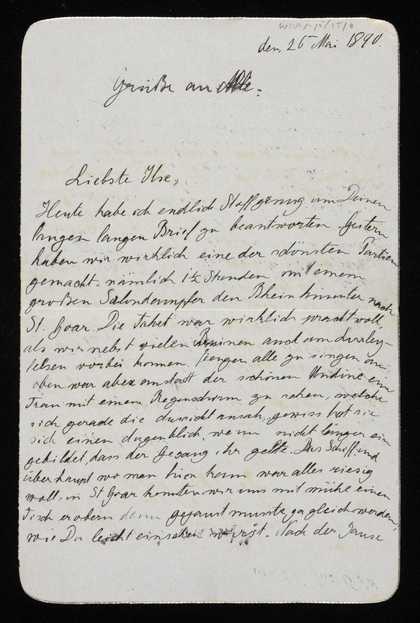 den, 26 Mai 1890.
Grüße an Alle.
Liebste Ilse,
Heute habe ich endlich Stoff genug um Deinen
langen langen Brief zu beantworten. Gestern
haben wir wirklich eine der schönsten Partien
gemacht. nämlich 1½ Stunden mit einem
großen Salondampfer den Rhein hinunter nach
St. Goar. Die Fahrt war wirklich prachtvoll,
als wir nebst vielen Ruinen auch am Lurley-
felsen vorbei kamen, fiengen alle zu singen an
oben war aber anstatt der schönen Undine eine
Frau mit einem Regenschirm zu sehen, welche
sich gerade die Aussicht ansah, gewiss hat sie
sich einen Augenblick, wenn nicht länger ein
gebildet, dass der Gesang ihr gelte. Das Schiff und
überhaupt wo man hin kam war alles riesig
voll, in St Goar konnten wir uns mit mühe einen
Tisch erobern denn gejaust musste ja gleich werden,
wie Du leicht einsehen wirst. Nach der Jause